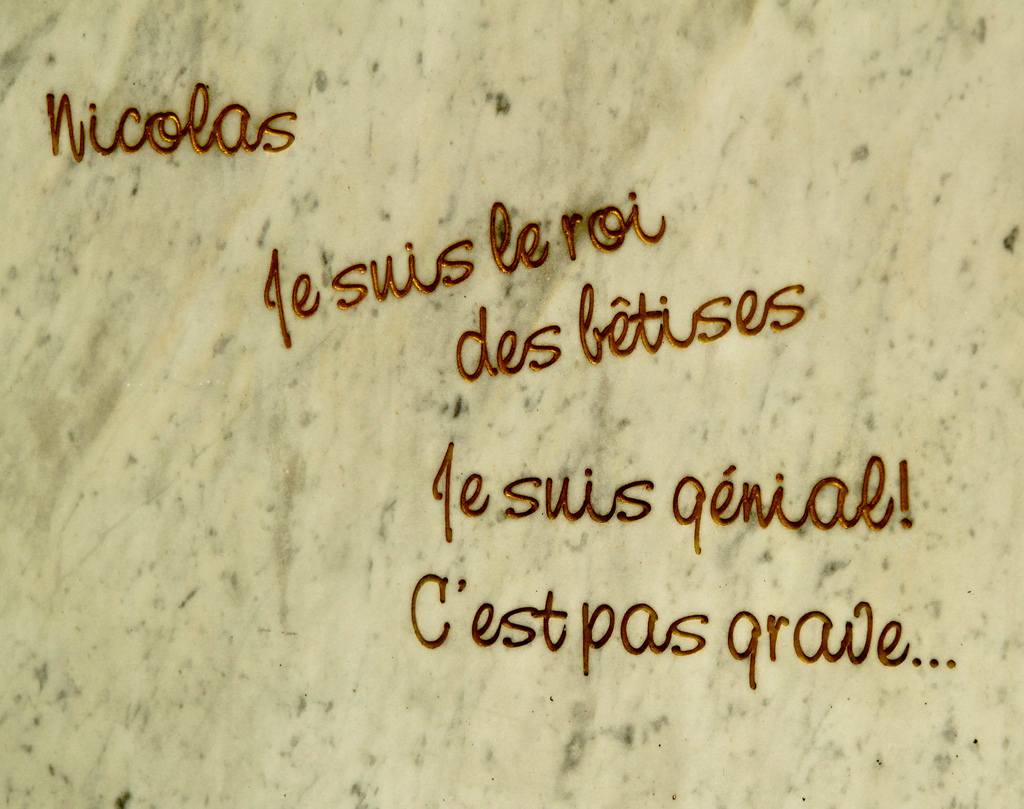 Nicolas
Je suis le roi
des bêtises
Je suis génial!
C'est pas grave...